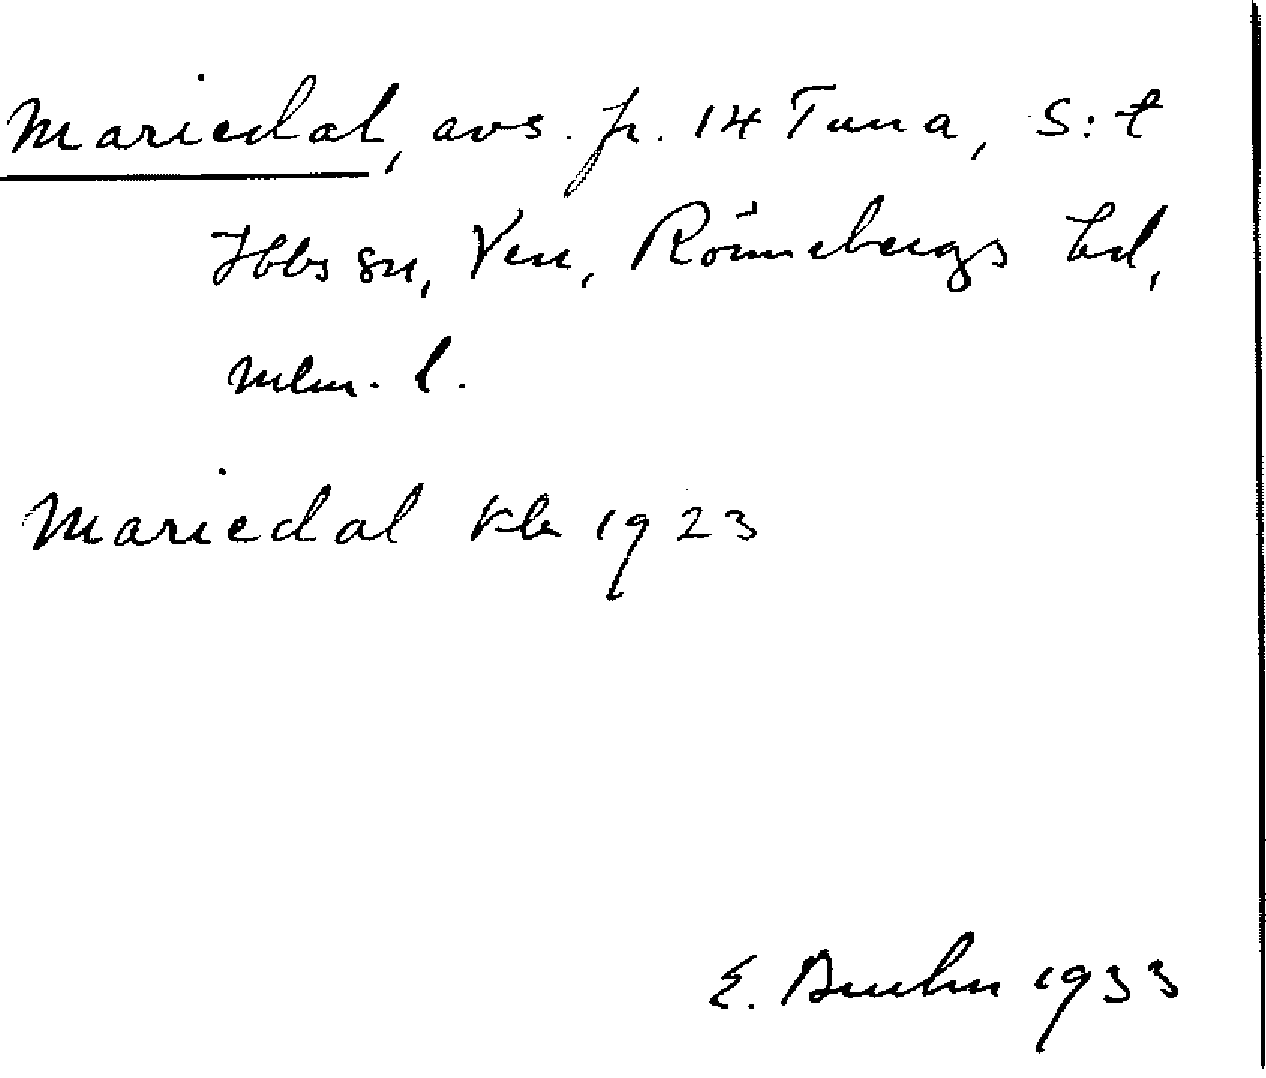 Mariedal, avs. fr. 14 Tuna, S:t
Ibbs sn, Ven, Rönnebergs hd,
Mlm. l.
Mariedal Kb 1923
E. Bruhn 1933